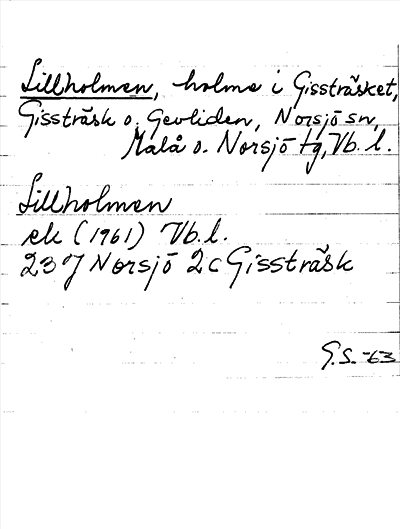 Lillholmen, holme i Gissträsket,
Gissträsk o. Gevliden, Norsjö sn,
Malå o. Norsjö tg, Vb. l.
Lillholmen
ek (1961) Vb. l.
23 J Norsjö 2c Gissträsk
G.S. -63